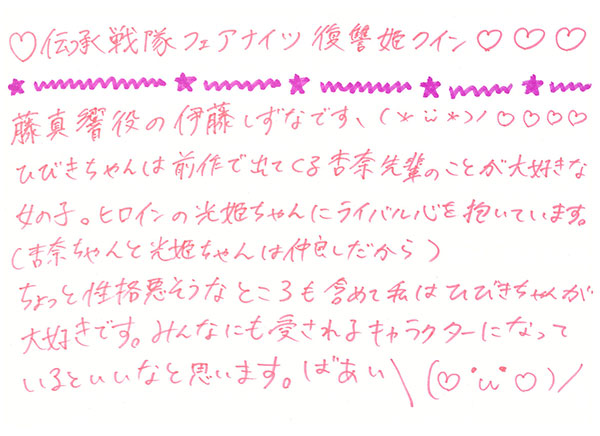 ♡伝承戦隊フェアナイツ 復讐姫クイン♡ ♡ ♡
藤真響役の伊藤しずなです、(*¨*)ノ♡♡♡♡
ひびきちゃんは前作で出てくる杏奈先輩のことが大好きな
女の子。ヒロインの光姫ちゃんにライバル心を抱いています。
(杏奈ちゃんと光姫ちゃんは仲良しだから)
ちょっと性格悪そうなところも含めて私はひびきちゃんが
大好きです。みんなにも愛されるキャラクターになって
いるといいなと思います。ばあい \(♡°ω°♡)/